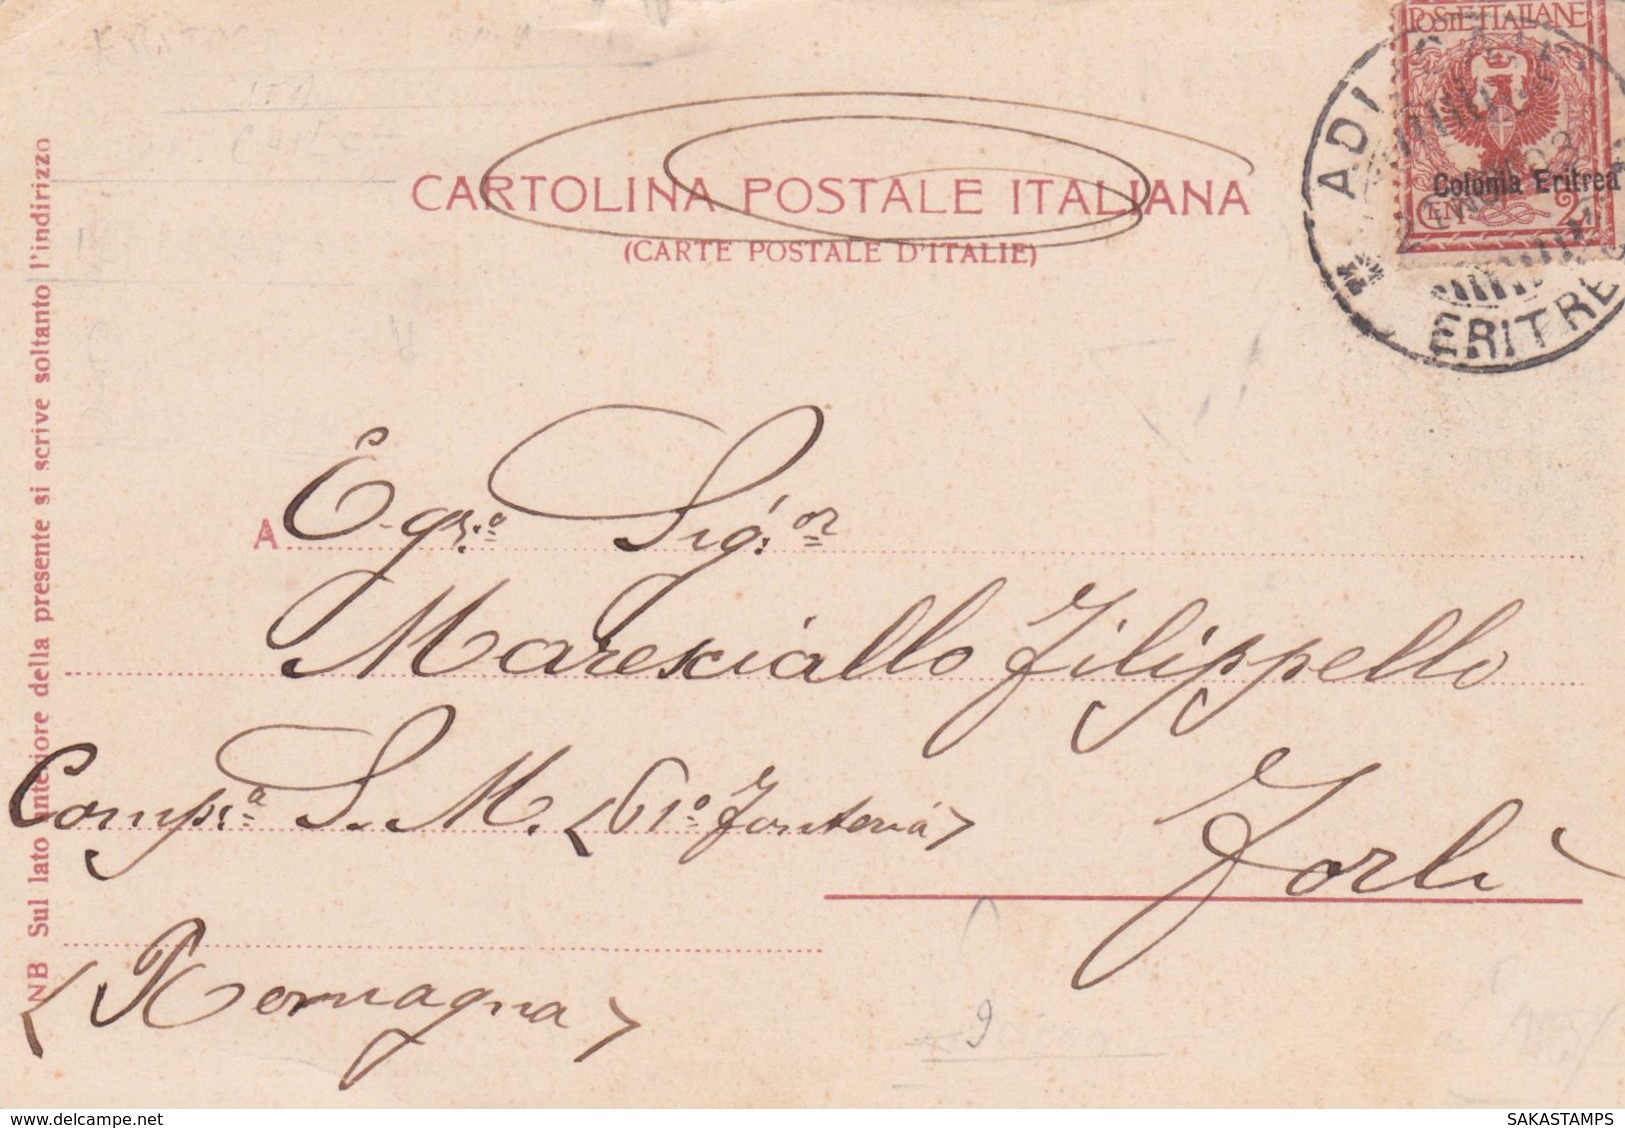 POSTE ITALIANE
Colonia Eritrea
CENT. 2
ADI
NOV 03
ERITREA
CARTOLINA POSTALE ITALIANA
(CARTE POSTALE D'ITALIE)
NB Sul lato anteriore della presente si scrive soltanto l'indirizzo
A Egr.o Sig.or
Maresciallo Filippello
Comp.a S. M. (61o Fanteria)
Forlì
(Romagna)
9
SAKASTAMPS